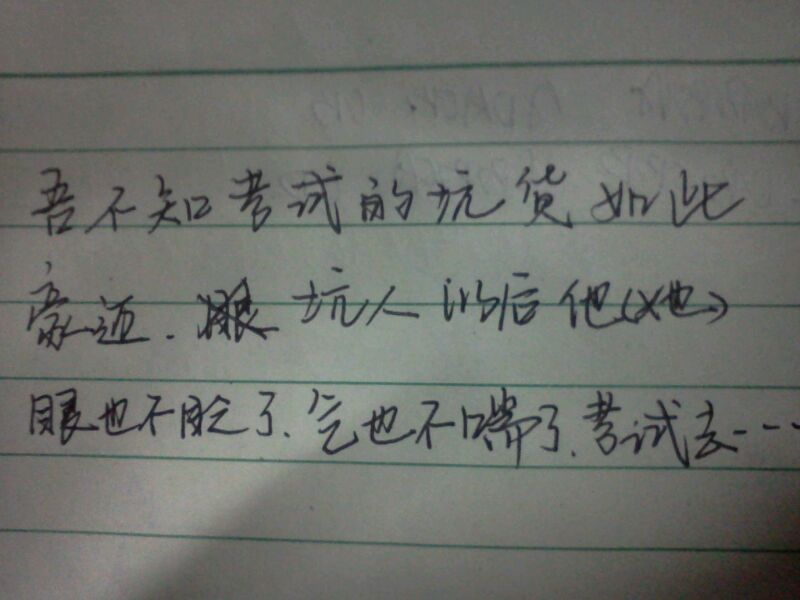 吾不知考试的坑货如此
豪迈.坑人以后他(她)
眼也不眨了、气也不喘了、考试去---